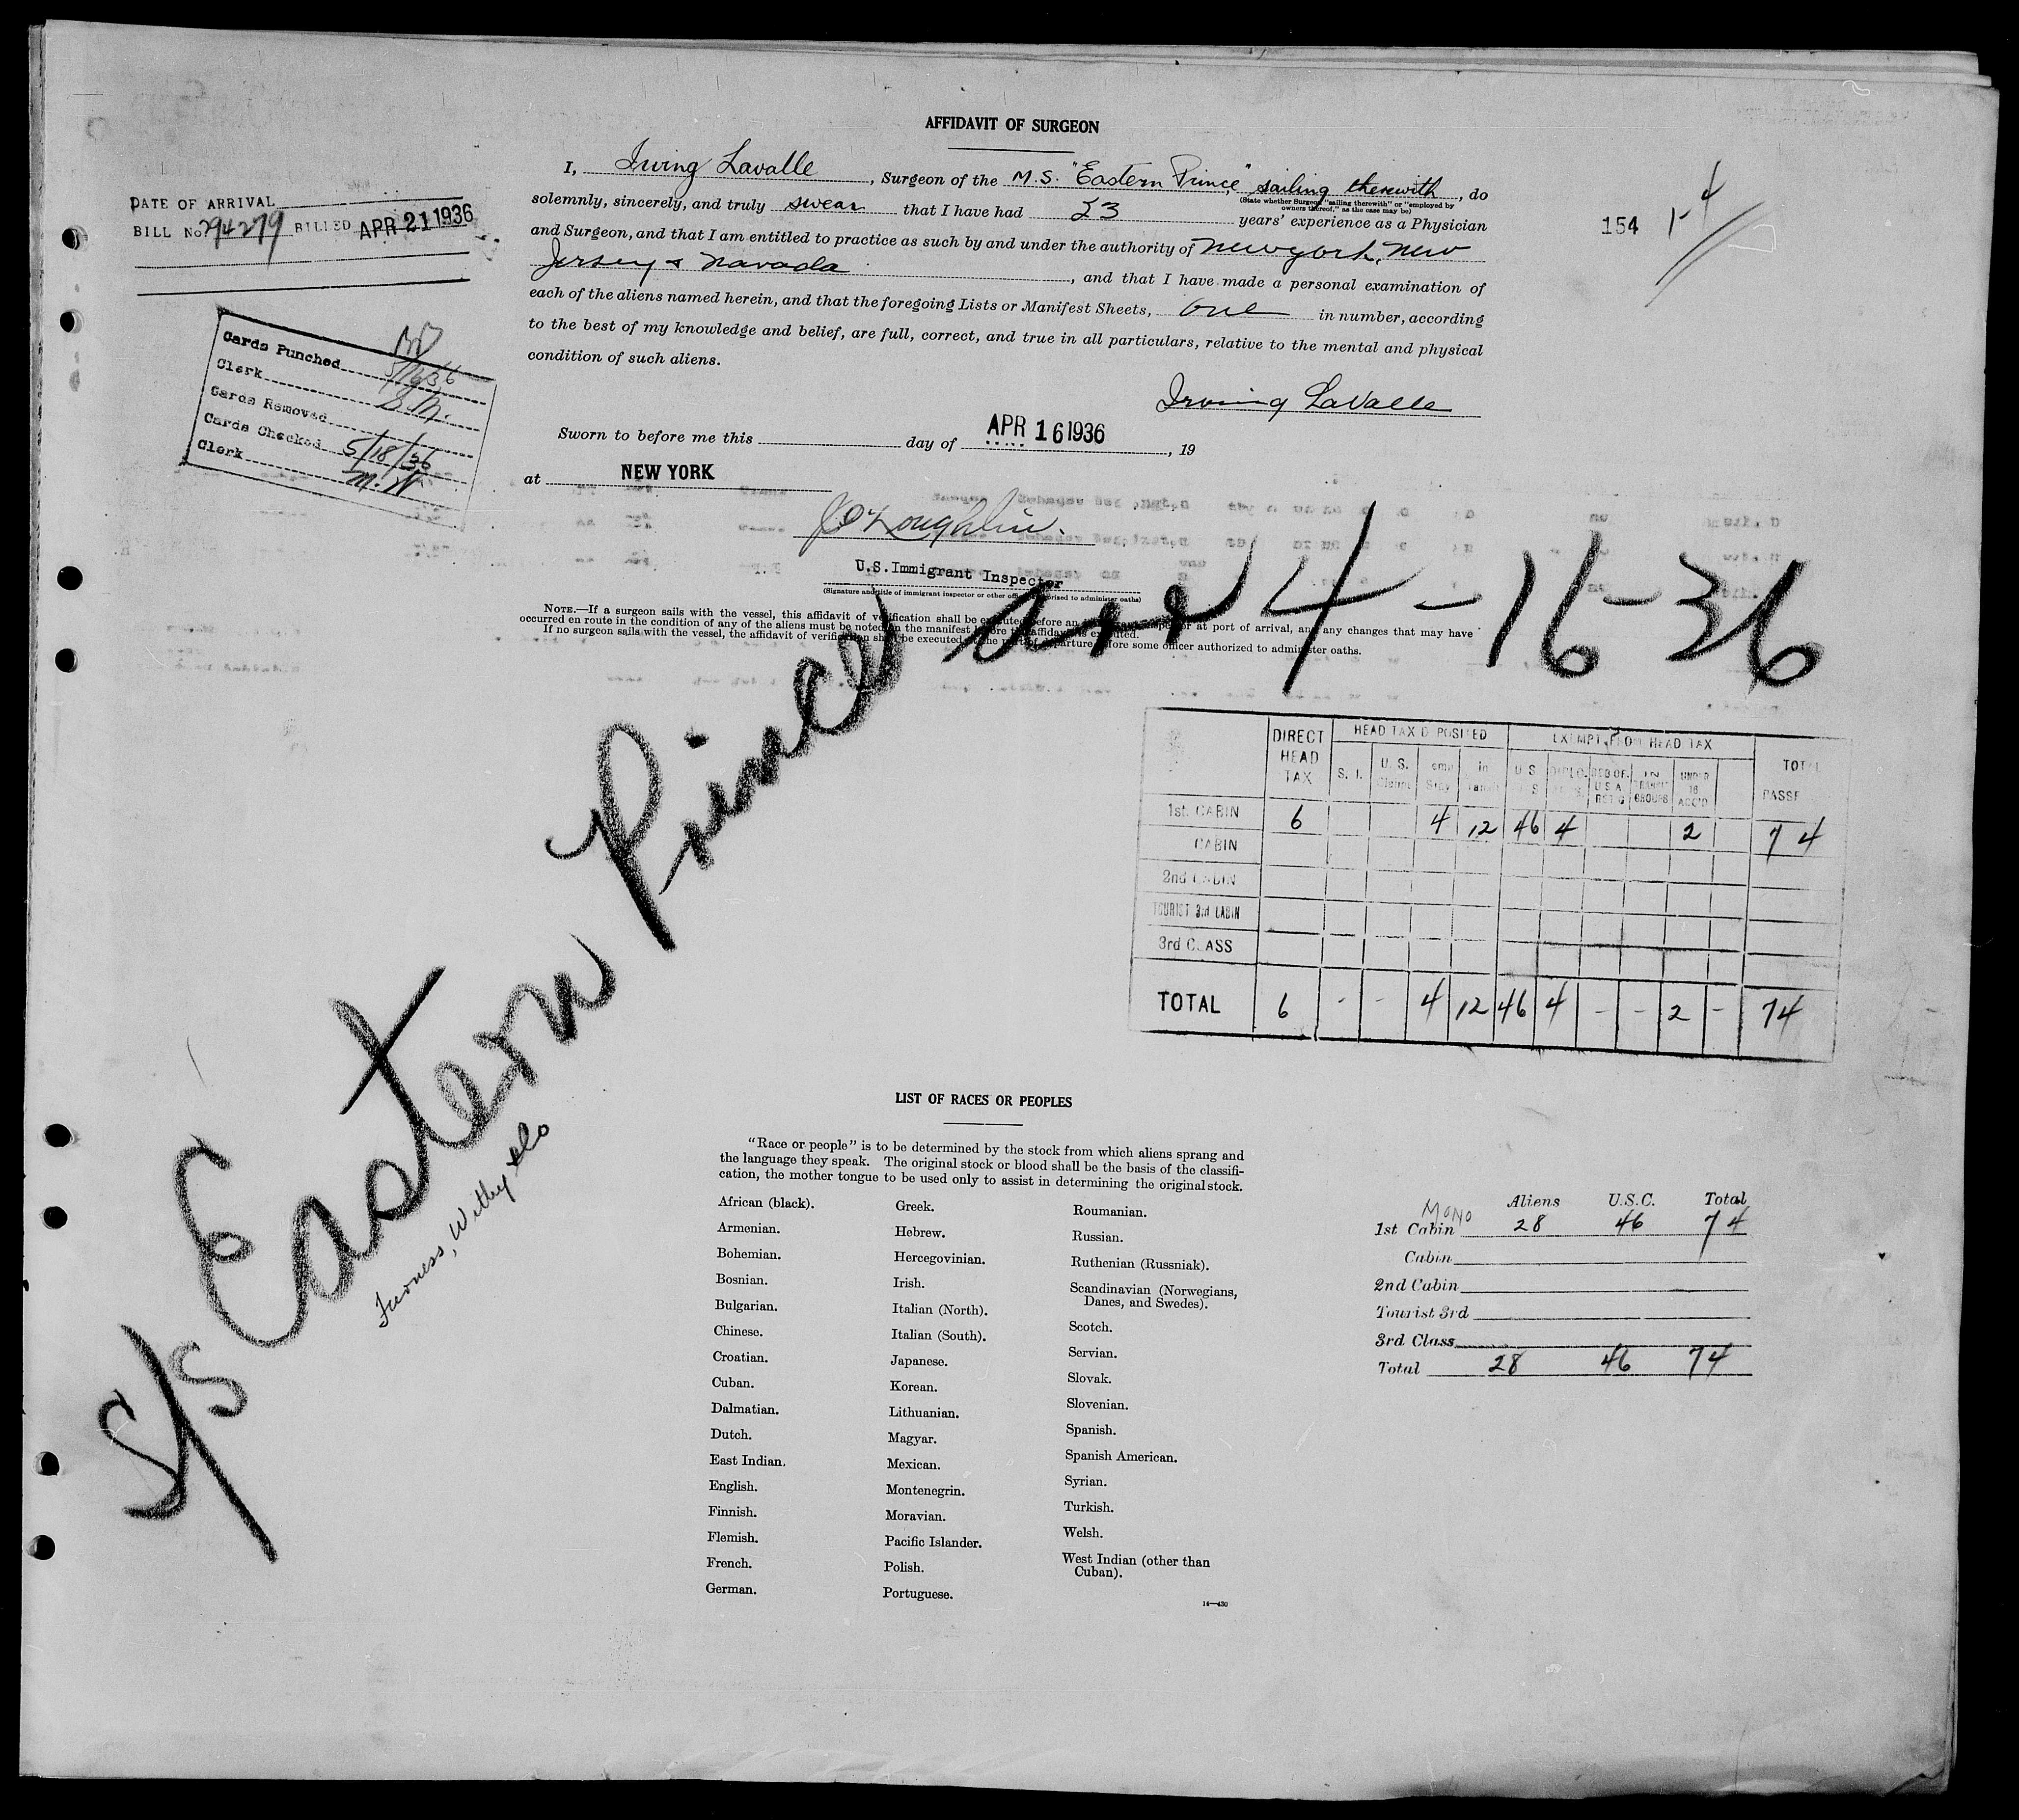 AFFIDAVIT OF SURGEON
I, Irving Lavalle, Surgeon of the M.S. "Eastern Prince" sailing therewith, do
(State whether Surgeon "sailing therewith" or "employed by
owners thereof," as the case may be)
solemnly, sincerely, and truly swear that I have had 23 years' experience as a Physician
and Surgeon, and that I am entitled to practice as such by and under the authority of New york, New
Jersey & Navada, and that I have made a personal examination of
each of the aliens named herein, and that the foregoing Lists or Manifest Sheets, one in number, according
to the best of my knowledge and belief, are full, correct, and true in all particulars, relative to the mental and physical
condition of such aliens.
Irving LaValle
Sworn to before me this day of APR 16 1936, 19
at NEW YORK
U.S. Immigrant Inspector
(Signature and title of immigrant inspector or other officer authorized to administer oaths)
NOTE.—If a surgeon sails with the vessel, this affidavit of verification shall be executed before an at port of arrival, and any changes that may have
occurred en route in the condition of any of the aliens must be noted on the manifest before the affidavit is executed.
If no surgeon sails with the vessel, the affidavit of verification shall be executed at the port of departure before some officer authorized to administer oaths.
DATE OF ARRIVAL
BILL No. 294279 BILLED APR 21 1936
154 1-4
Cards Punched 5/16/36
Clerk S.M.
Cards Removed
Cards Checked 5/18/36
Clerk M.N
S/S Eastern Prince arr 4-16-36
Furness, Withy & Co
DIRECT HEAD TAX HEAD TAX DEPOSITED EXEMPT FROM HEAD TAX TOTAL PASSE
S. I. U. S. in U S UNDER 16 ACC'D
IN TRANSIT GROUPS
1st. CABIN 6 4 12 46 4 2 74
CABIN
2nd CABIN
TOURIST 3rd CABIN
3rd CLASS
TOTAL 6 - - 4 12 46 4 - - 2 - 74
LIST OF RACES OR PEOPLES
"Race or people" is to be determined by the stock from which aliens sprang and
the language they speak. The original stock or blood shall be the basis of the classifi-
cation, the mother tongue to be used only to assist in determining the original stock.
African (black).
Armenian.
Bohemian.
Bosnian.
Bulgarian.
Chinese.
Croatian.
Cuban.
Dalmatian.
Dutch.
East Indian.
English.
Finnish.
Flemish.
French.
German.
Greek.
Hebrew.
Hercegovinian.
Irish.
Italian (North).
Italian (South).
Japanese.
Korean.
Lithuanian.
Magyar.
Mexican.
Montenegrin.
Moravian.
Pacific Islander.
Polish.
Portuguese.
Roumanian.
Russian.
Ruthenian (Russniak).
Scandinavian (Norwegians,
Danes, and Swedes).
Scotch.
Servian.
Slovak.
Slovenian.
Spanish.
Spanish American.
Syrian.
Turkish.
Welsh.
West Indian (other than
Cuban).
14—430
Aliens U.S.C. Total
MONO
1st Cabin 28 46 74
Cabin
2nd Cabin
Tourist 3rd
3rd Class
Total 28 46 74